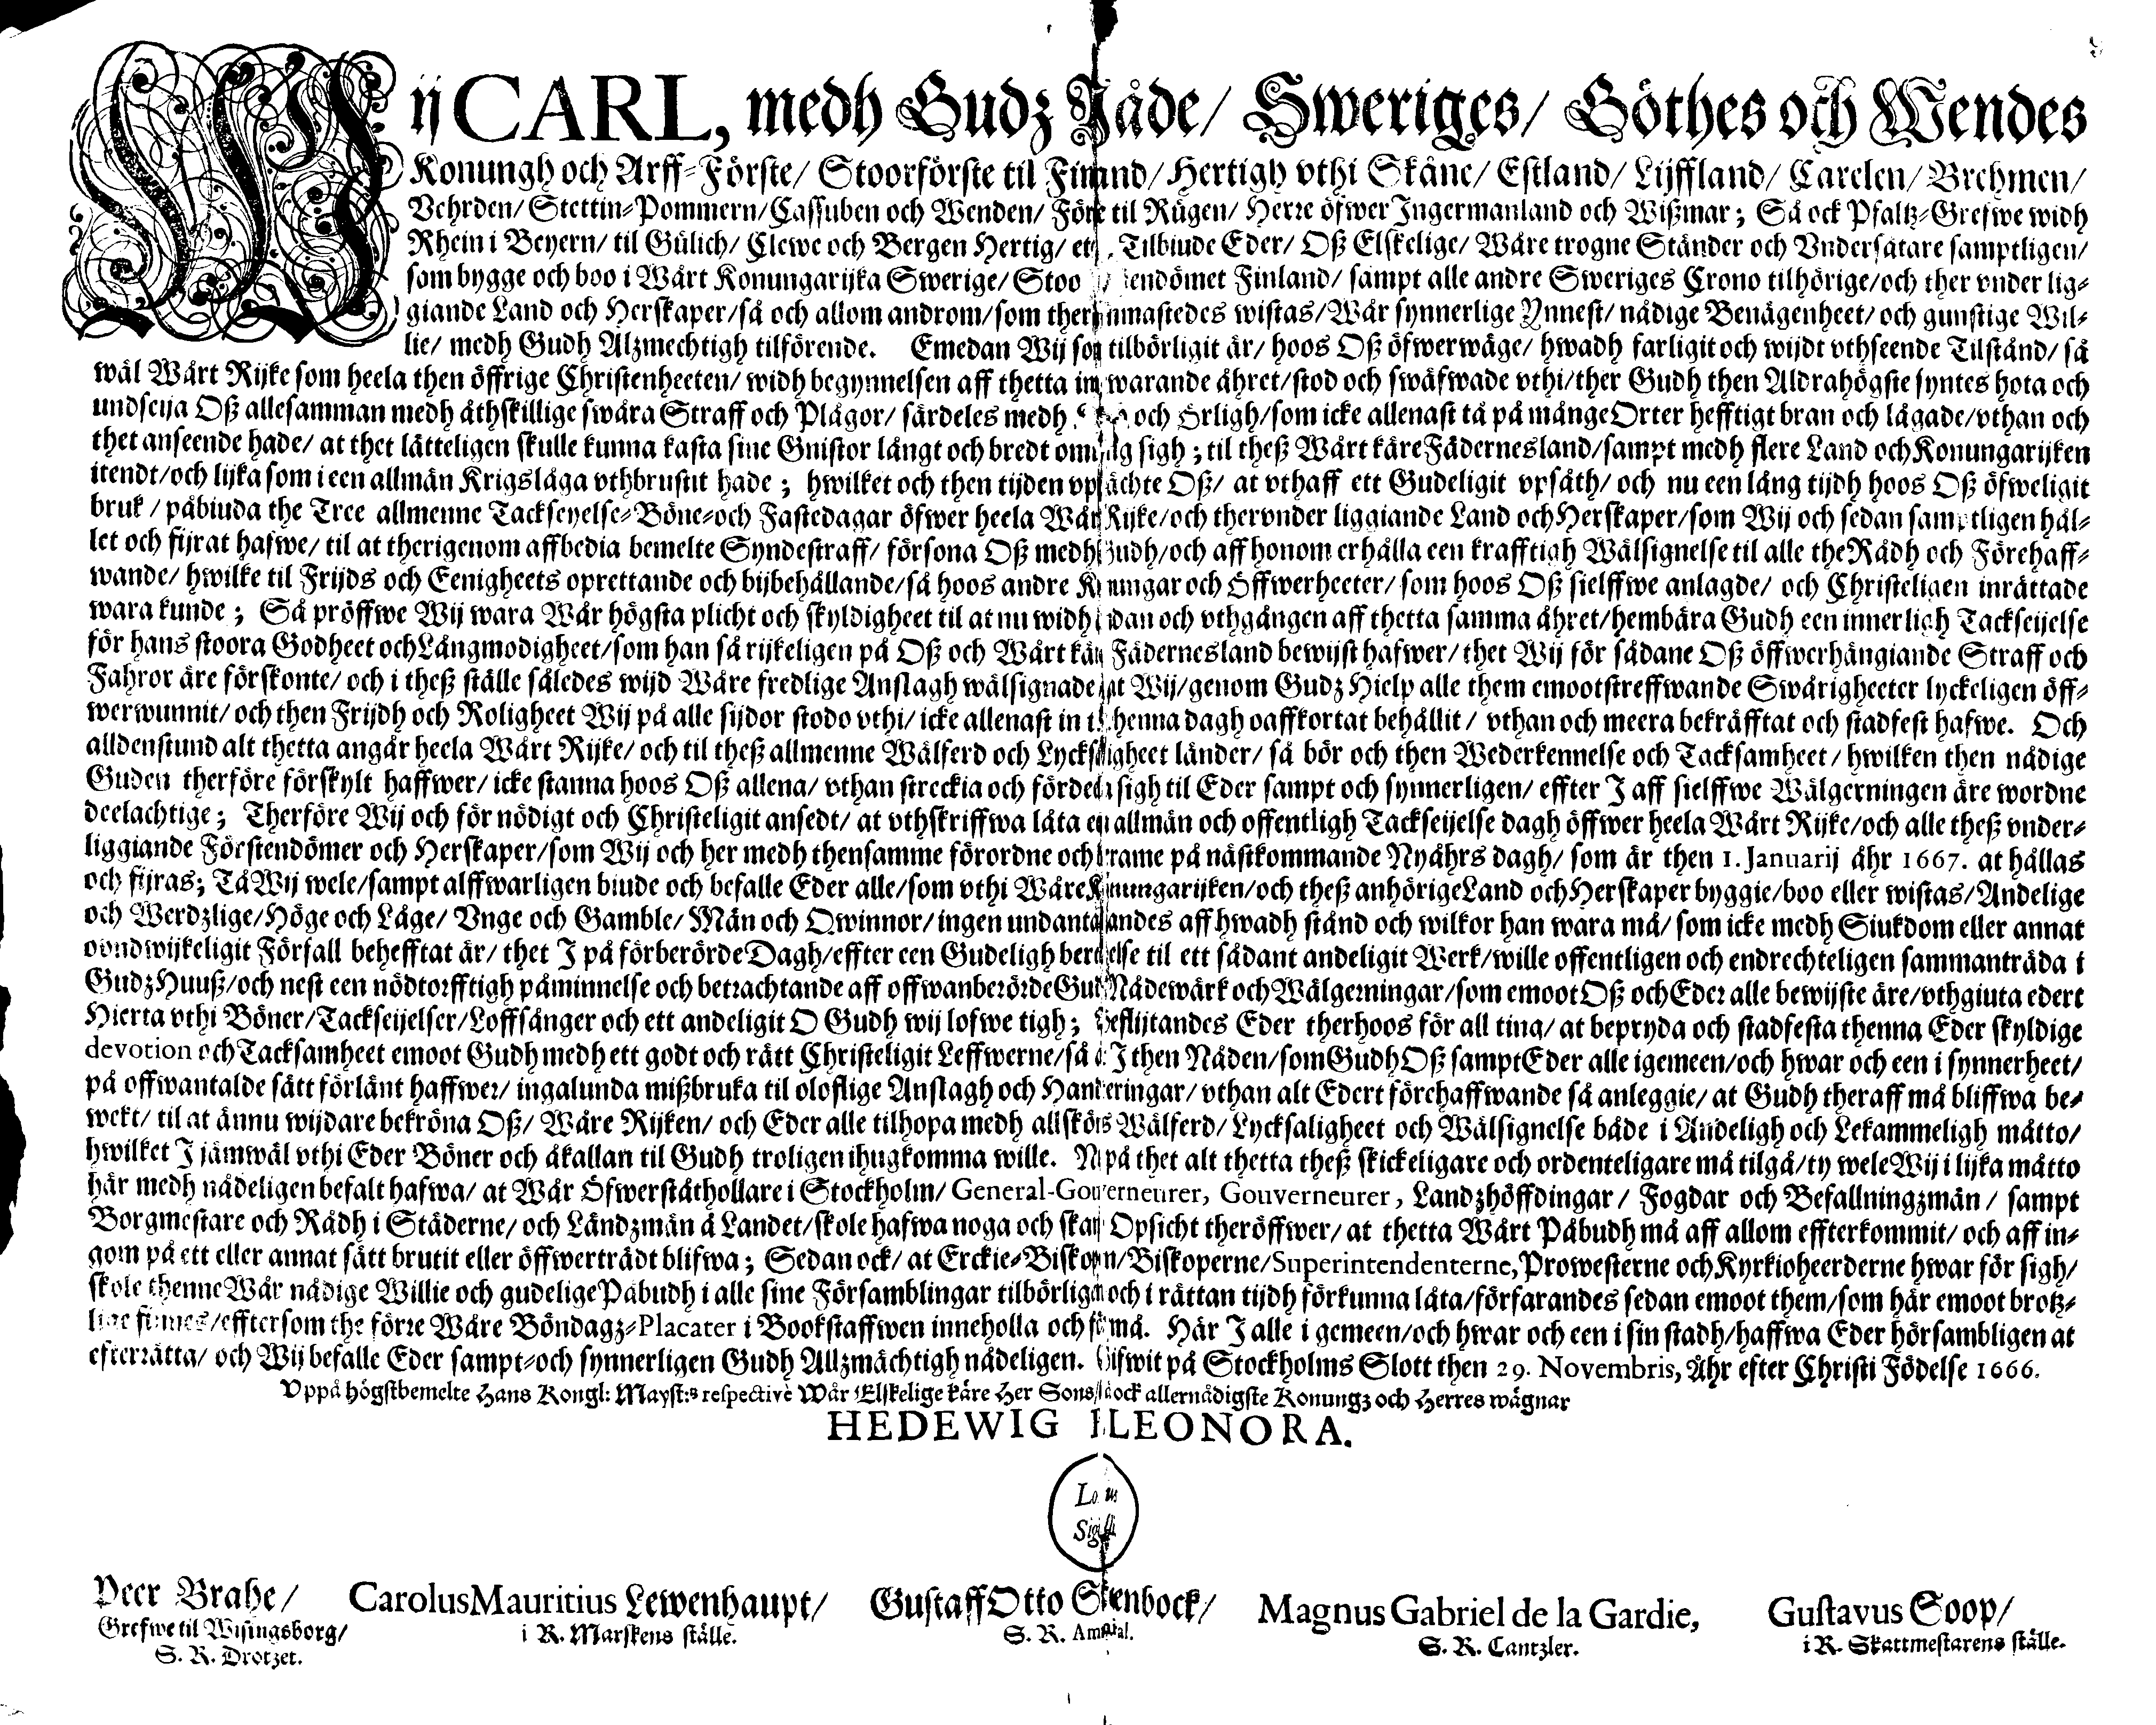 Wij CARL, medh Gudz Nåde/ Sweriges/ Göthes och Wendes
Konungh och Arff-Förste/ Stoorförste til Finland/ Hertigh vthi Skåne/ Estland/ Lijffland/ Carelen/ Brehmen/
Vehrden/ Stettin-Pommern/ Cassuben och Wenden/ Förste til Rügen/ Herre öfwer Ingermanland och Wißmar; Så ock Pfaltz-Grefwe widh
Rhein i Beyern/ til Gülich/ Clewe och Bergen Hertig/ etc. Tilbiude Eder/ Oß Elskelige/ Wåre trogne Ständer och Vndersåtare samptligen/
som bygge och boo i Wårt Konungarijka Swerige/ Stoorförstendömet Finland/ sampt alle andre Sweriges Crono tilhörige/ och ther vnder lig-
giande Land och Herskaper/ så och allom androm/ som ther inmastedes wistas/ Wår synnerlige Ynnest/ nådige Benägenheet/ och gunstige Wil-
lie/ medh Gudh Alzmechtigh tilförende. Emedan Wij som tilbörligit är/ hoos Oß öfwerwäge/ hwadh farligit och wijdt vthseende Tilstånd/ så
wäl Wårt Rijke som heela then öffrige Christenheeten/ widh begynnelsen aff thetta inwarande åhret/ stod och swäfwade vthi/ ther Gudh then Aldrahögste syntes hota och
undseija Oß allesamman medh åthskillige swåra Straff och Plågor/ särdeles medh och Örligh/ som icke allenast tå på månge Orter hefftigt bran och lågade/ vthan och
thet anseende hade/ at thet lätteligen skulle kunna kasta sine Gnistor långt och bredt omkring sigh; til theß Wårt käre Fädernesland/ sampt medh flere Land och Konungarijken
itendt/ och lijka som i een allmän Krigslåga vthbrustit hade; hwilket och then tijden vpwächte Oß/ at vthaff ett Gudeligit vpsåth/ och nu een lång tijdh hoos Oß öfweligit
bruk/ påbiuda the Tree allmenne Tackseyelse-Böne-och Fastedagar öfwer heela Wårt Rijke/ och thervnder liggiande Land och Herskaper/ som Wij och sedan samptligen hål-
let och fijrat hafwe/ til at therigenom affbedia bemelte Syndestraff/ försona Oß medh Gudh/ och aff honom erhålla een krafftigh Wälsignelse til alle the Rådh och Förehaff-
wande/ hwilke til Frijds och Eenigheets oprettande och bijbehållande/ så hoos andre Konungar och Öffwerheeter/ som hoos Oß sielffwe anlagde/ och Christeligen inrättade
wara kunde; Så pröffwe Wij wara Wår högsta plicht och skyldigheet til at nu widh ändan och vthgången aff thetta samma åhret/ hembära Gudh een innerligh Tackseijelse
för hans stoora Godheet och Långmodigheet/ som han så rijkeligen på Oß och Wårt käre Fädernesland bewijst hafwer/ thet Wij för sådane Oß öffwerhängiande Straff och
Fahror äre förskonte/ och i theß ställe således wijd Wåre fredlige Anslagh wälsignade/ at Wij/ genom Gudz Hielp alle them emootstreffwande Swårigheeter lyckeligen öff-
werwunnit/ och then Frijdh och Roligheet Wij på alle sijdor stodo vthi/ icke allenast in til thenna dagh oaffkortat behållit/ vthan och meera bekräfftat och stadfest hafwe. Och
alldenstund alt thetta angår heela Wårt Rijke/ och til theß allmenne Wälferd och Lycksaligheet länder/ så bör och then Wederkennelse och Tacksamheet/ hwilken then nådige
Guden therföre förskylt haffwer/ icke stanna hoos Oß allena/ vthan streckia och fördela sigh til Eder sampt och synnerligen/ effter I aff sielffwe Wälgerningen äre wordne
deelachtige; Therföre Wij och för nödigt och Christeligit ansedt/ at vthskriffwa låta en allmän och offentligh Tackseijelse dagh öffwer heela Wårt Rijke/ och alle theß vnder-
liggiande Förstendömer och Herskaper/ som Wij och her medh thensamme förordne och berame på nästkommande Nyåhrs dagh/ som är then 1. Januarij åhr 1667. at hållas
och fijras; Tå Wij wele/ sampt alffwarligen biude och befalle Eder alle/ som vthi Wåre Konungarijken/ och theß anhörige Land och Herskaper byggie/ boo eller wistas/ Andelige
och Werdzlige/ Höge och Låge/ Vnge och Gamble/ Män och Qwinnor/ ingen undantagandes aff hwadh stånd och wilkor han wara må/ som icke medh Siukdom eller annat
oondwijkeligit Förfall behefftat är/ thet I på förberörde Dagh/ effter een Gudeligh beredelse til ett sådant andeligit Werk/ wille offentligen och endrechteligen sammanträda i
Gudz Huuß/ och nest een nödtorfftigh påminnelse och betrachtande aff offwanberörde Gudz Nådewärk och Wälgerningar/ som emoot Oß och Eder alle bewijste äre/ vthgiuta edert
Hierta vthi Böner/ Tackseijelser/ Loffsånger och ett andeligit O Gudh wij lofwe tigh; Beflijtandes Eder therhoos för all ting/ at bepryda och stadfesta thenna Eder skyldige
devotion och Tacksamheet emoot Gudh medh ett godt och rätt Christeligit Leffwerne/ så at I then Nåden/ som Gudh Oß sampt Eder alle igemeen/ och hwar och een i synnerheet/
på offwantalde sätt förlänt haffwer/ ingalunda mißbruka til oloflige Anslagh och Hanteringar/ vthan alt Edert förehaffwande så anleggie/ at Gudh theraff må bliffwa be-
wekt/ til at ännu wijdare bekröna Oß/ Wåre Rijken/ och Eder alle tilhopa medh allsköns Wälferd/ Lycksaligheet och Wälsignelse både i Andeligh och Lekammeligh måtto/
hwilket I jämwäl vthi Eder Böner och åkallan til Gudh troligen ihugkomma wille. Nu på thet alt thetta theß skickeligare och ordenteligare må tilgå/ ty wele Wij i lijka måtto
här medh nådeligen befalt hafwa/ at Wår Öfwerståthollare i Stockholm/ General-Gouverneurer, Gouverneurer, Landzhöffdingar/ Fogdar och Befallningzmän/ sampt
Borgmestare och Rådh i Städerne/ och Ländzmän å Landet/ skole hafwa noga och skarp Opsicht theröffwer/ at thetta Wårt Påbudh må aff allom effterkommit/ och aff in-
gom på ett eller annat sätt brutit eller öffwerträdt blifwa; Sedan ock/ at Erckie-Biskopen/ Biskoperne/ Superintendenterne, Prowesterne och Kyrkioheerderne hwar för sigh/
skole thenne Wår nådige Willie och gudelige Påbudh i alle sine Församblingar tilbörligen och i rättan tijdh förkunna låta/ förfarandes sedan emoot them/ som här emoot brotz-
lige finnes/ efftersom the förre Wåre Böndagz-Placater i Bookstaffwen inneholla och förmå. Här I alle i gemeen/ och hwar och een i sin stadh/ haffwa Eder hörsambligen at
efterrätta/ och Wij befalle Eder sampt-och synnerligen Gudh Allzmächtigh nådeligen. Gifwit på Stockholms Slott then 29. Novembris, Åhr efter Christi Födelse 1666.
Vppå högstbemelte Hans Kongl: Mayst:s respectivè Wår Elskelige käre Her Sons/ så ock allernådigste Konungz och Herres wägnar
HEDEWIG ELEONORA.
Locus
Sigilli
Peer Brahe/ Carolus Mauritius Lewenhaupt/ Gustaff Otto Steenbock/ Magnus Gabriel de la Gardie, Gustavus Soop/
Grefwe til Wisingsborg/ i R. Marskens ställe. S. R. Ammiral. S. R. Cantzler. i R. Skattmestarens ställe.
S. R. Drotzet.